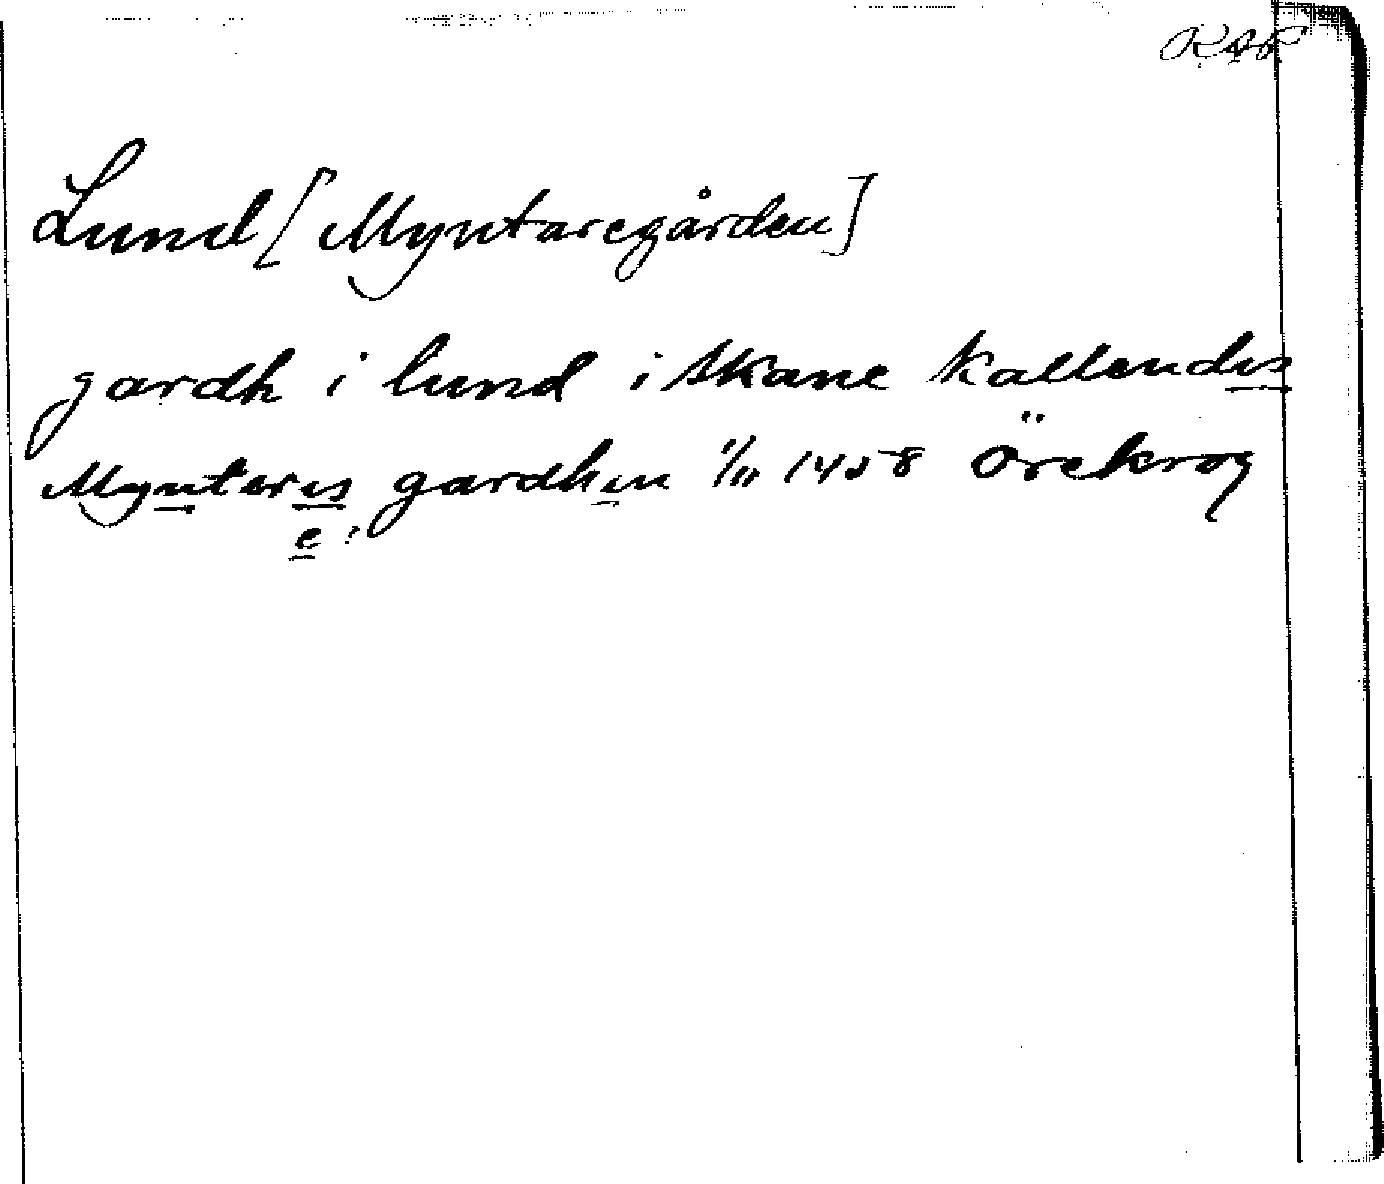 RAP
Lund [Myntaregården]
gardh i lund i skane kallendis
Mynteris gardhin 1/11 1458 Örekrog
e?